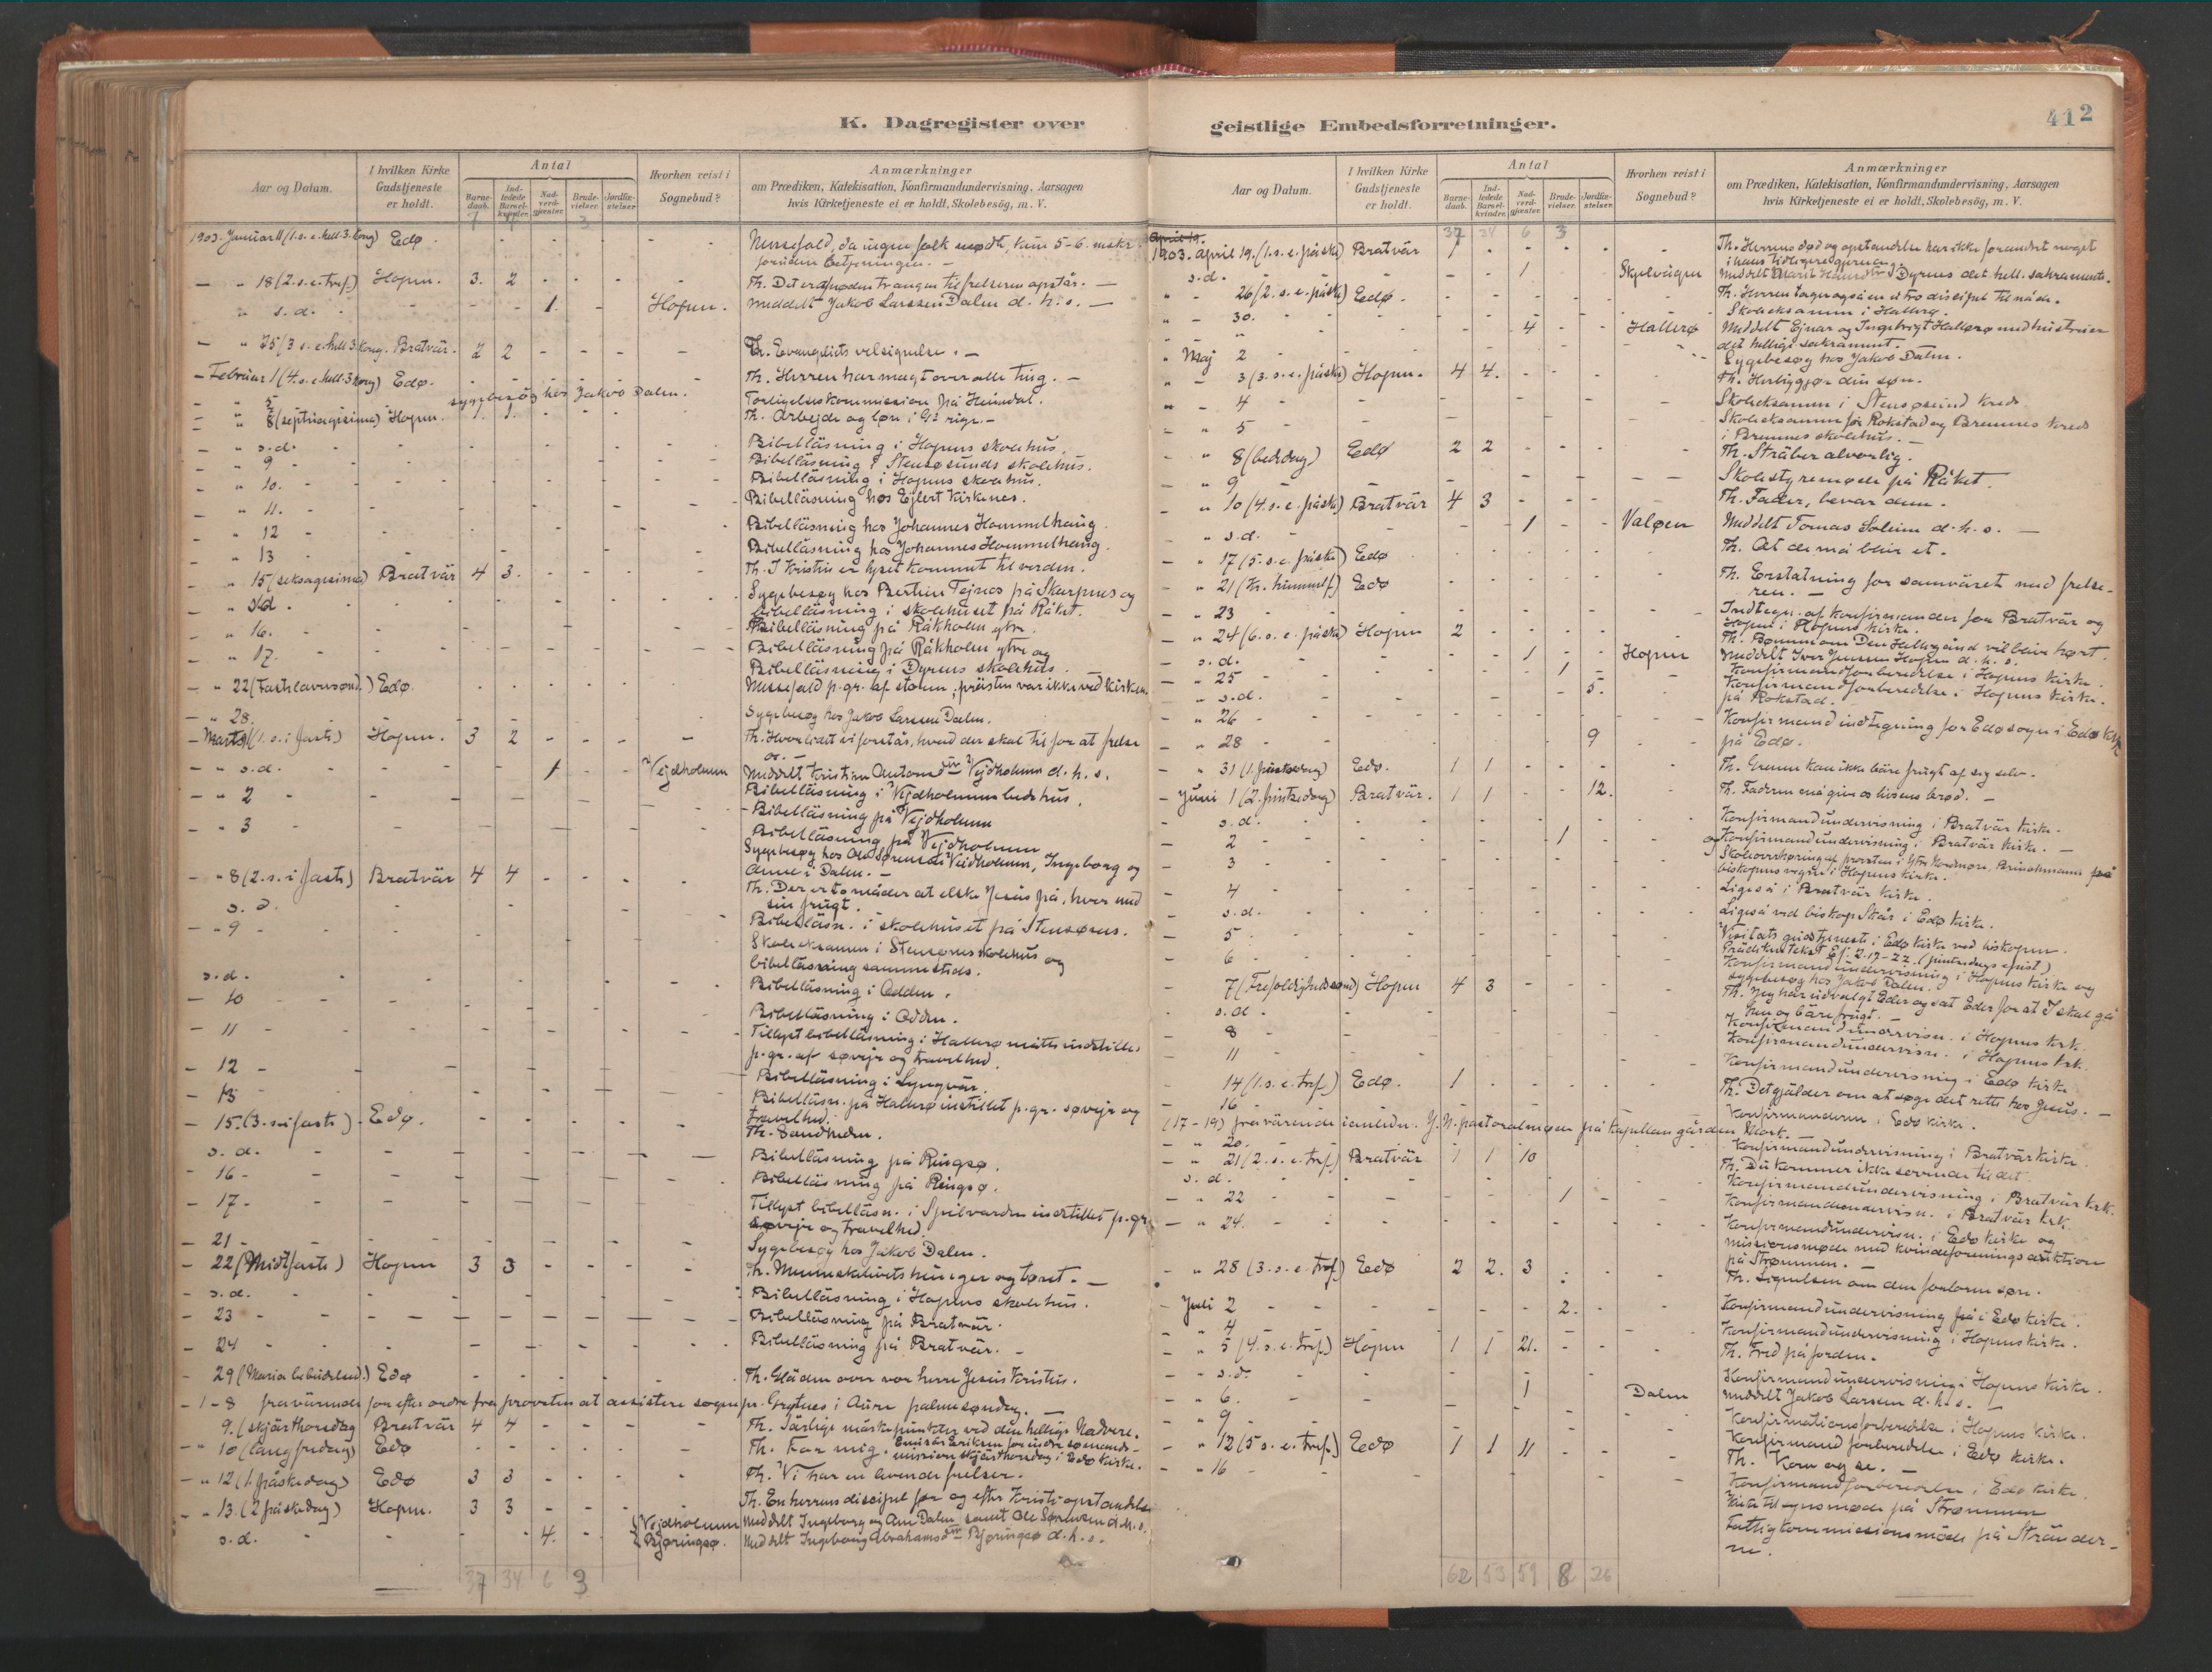 K. Dagregister over
Aar og Datum.
I hvilken Kirke Gudstjeneste er holdt.
Antal
Barne-daab.
Ind-ledede Barsel-kvinder.
Nad-verd-gjæster.
Brude-vielser.
Jordfæ-stelser.
Hvorhen reist i Sognebud?
Anmærkninger
om Prædiken, Katekisation, Konfirmandundervisning, Aarsagen
hvis Kirketjeneste ei er holdt, Skolebesög, m. V.
1903. Januar 11 (1. s. e. hell. 3. kong) Edø - Messefald, da ingen folk mødte, kun 5-6. mskr.
foruden betjeningen. -
- " 18 (2. s. e. tref.) Hopen. 3. 2 - Th. Det er i nøden trangen til frelseren opstår. -
" s. d. 1. Hopen. Meddelt Jakob Larssen Dalen d. h. s. -
- " 25 (3 s. e. hell 3. kong. Bratvär. 2 2 - Th. Evangeliets velsignelse. -
- Februar 1 (4. s. e. hell. 3. kong) Edø. - Th. Herren har magt over alle ting. -
" 5 sygebesøg hos Jakob Dalen. Forligelseskommission på Heindal.
- " 8 (septuagisima) Hopen. 1. 1. - Th. Arbejde og løn i Gs rige. -
- " s. d. Bibelläsning i Hopens skolehus.
- " 9 Bibelläsning i Stensøsunds skolehus.
- " 10. Bibelläsning i Hopens skolehus.
- " 11. Bibelläsning hos Ejlert Kirknes.
- " 12 Bibelläsning hos Johannes Hommelhaug.
- " 13 Bibelläsning hos Johannes Hommelhaug.
- " 15 (seksagesima) Bratvär 4 3. - Th. I Kristus er lyset kommet til verden.
- " s. d. Sygebesøg hos Bertin Tejnes på Skarpnes og
bibelläsning i skolehuset på Råket.
- " 16. Bibelläsning på Råkholm ytre.
- " 17. Bibelläsning på Råkholm ytre og
Bibelläsning i Dyrnes skolehus.
- " 22 (Fastelavnsønd.) Edø. Messefald p. gr. af storm; prästen var ikke ved kirken.
- " 28. Sygebesøg hos Jakob Larssen Dalen.
- Marts 1 (1. s. i faste) Hopen. 3 2 - Th. Hvor lidet vi forstås, hvad der skal til for at frelse
os. -
- " s. d. 1 Vejdholmen Meddelt Kristian Antonsen Vejdholmen d. h. s.
- " 2 Bibelläsning i Vejdholmens bedehus.
Bibelläsning på Vejdholmen
- " 3 Bibelläsning på Vejdholmen
Sygebesøg hos Ole Sørensen Vejdholmen, Ingeborg og
Anne i Dalen. -
- " 8 (2. s. i faste) Bratvär 4 4 - Th. Der er to måder at elske Jesus på, hver med
sin frugt.
s. d. Bibelläsn. i skolehuset på Stensøsnes.
- " 9 Skoleeksamen i Stensønes skolehus og
bibelläsning sammesteds.
s. d. Bibelläsning i Odden.
- 10 Bibelläsning i Odden.
- 11 Tillyst bibelläsning i Hallerø måtte indstilles
p. gr. af søvejr og travelhed.
- 12 Bibelläsning i Lyngvär.
- 13 Bibelläsn. på Hallerø instillet p. gr. søvejr og
travelhed.
- 15. (3. s. i faste). Edø. Th. Sandheden.
s. d. Bibelläsning på Ringsø.
- 16 - Bibelläsning på Ringsø.
- 17 - Tillyst bibelläsn. i Spilvarden instillet p. gr.
søvejr og travelhed.
- 21 - Sygebesøg hos Jakob Dalen.
- 22 (Midtfaste) Hopen 3 3 - Th. Menneskelivets hunger og tørst. -
- s. d. Bibelläsning i Hopens skolehus.
- 23 Bibelläsning på Bratvär.
- 24 Bibelläsning på Bratvär. -
29 (Maria bebudelsed.) Edø Th. Gläden over vor herre Jesus Kristus.
- 1-8 fraværende for efter ordre fra provsten at assistere sognepr. Grøtnes i Aure palmesøndag. -
9. (skjärthorsdag Bratvär 4 4 - Th. Särlige märkepunkter ved den hellige Nadvere.
- " 10 (langfredag) Edø Th. Far mig. Emisär Eriksen for indre sømands-
mission skjärthorsdag i Edø kirke.
- " 12 (1. påskedag) Edø 3 3 - Th. Vi har en levende frelser.
- " 13. (2 påskedag) Hopen. 3 3 - Th. En herrens discipel før og efter Kristi opstandelse
s. d. 4. Vejdholmen Meddelt Ingeborg og Ane Dalen samt Ole Sørensen d. h. s.
Bjøringsø. Meddelt Ingeborg Abrahamsdtr Bjøringsø d. h. s.
37 34 6 3
geistlige Embedsforretninger.
412
Aar og Datum.
I hvilken Kirke Gudstjeneste er holdt.
Antal
Barne-daab.
Ind-ledede Barsel-kvinder.
Nad-verd-gjæster.
Brude-vielser.
Jordfæ-stelser.
Hvorhen reist i Sognebud?
Anmærkninger
om Prædiken, Katekisation, Konfirmandundervisning, Aarsagen
hvis Kirketjeneste ei er holdt, Skolebesög, m. V.
37 34 6 3
April 19.
1903. april 19. (1. s. e. påske) Bratvär 1 - Th. Herrens død og opstandelse har ikke forandret noget
i hans tidligere gjerning.
s. d. 1 Skjelvågen Meddelt Marit Dyrnes det hell. sakramente.
" - 26 (2. s. e. påske) Edø. Th. Herren tager også en utro discipel til nåde.
" - 30. Skoleeksamen i Hallerø.
" 4 Hallerø Meddelt Ejnar og Ingebrigt Hallerø med hustruer
det hellige sakrament.
" Maj 2 Sygebesøg hos Jakob Dalen.
" - 3 (3. s. e. påske) Hopen. 4 4. Th. Herliggjør din søn.
" - 4 Skoleeksamen i Stensøsund kreds
- " 5 Skoleeksamen for Rokstad og Bremnes kreds
i Bremnes skolehus. -
- " 8 (bededag) Edø 2 2 - Th. Sträber alvorlig.
- " 9 Skolestyremøde på Råket.
- " 10 (4. s. e. påske) Bratvär 4 3 - Th. Fader, bevar dem.
- " s. d. 1 Valøen Meddelt Tomas Soleim d. h. s. -
- " 17 (5. s. e. påske) Edø Th. At de må blive et.
- " 21 (Kr. himmelf.) Edø Th. Erstatning for samväret med frelse-
ren. -
- " 23 Indtegn. af konfirmander for Bratvär og
Hopen i Hopens kirke.
- " 24 (6. s. e. påske) Hopen 2 Th. Bønnen om Den Helligånd vil blive hørt.
- s. d. 1 Hopen Meddelt Iver Jensen Hopen d. h. s.
- " 25 1 Konfirmandforberedelse i Hopens kirke.
- " s. d. 5. Konfirmandforberedelse i Hopens kirke.
- " 26 på Rokstad.
- " 28 9 Konfirmand indtegning for Edø sogn i Edø kirke
på Edø.
- " 31 (1. pinsedag) Edø. 1 1 Th. Grenen kan ikke bäre frugt af sig selv.
- Juni 1 (2. pintsedag) Bratvär. 1 1 - - 12. Th. Faderen må give os livsens brød. -
- s. d. Konfirmandundervisning i Bratvär kirke.
- 2 1 Konfirmandundervisning i Bratvär kirke. -
- 3 Skoleoverhøring af provsten i Ytre Nordmøre, Brinchmann på
biskopens vegne i Hopens kirke.
- 4 Ligeså i Bratvär kirke.
- s. d. Ligeså ved biskop Skår i Edø kirke.
- 5 Visitats gudstjeneste i Edø kirke ved biskopen.
Prädikentekst Ef. 2. 17-22. (pintsedags epist)
- 6 Konfirmandundervisning i Hopens kirke og
sygebesøg hos Jakob Dalen.
- 7 (Trefoldighedssønd) Hopen 4 3 - Th. Jeg har udvalgt Eder og sat Eder for at I skal gå
hen og bäre frugt.
- s. d. Konfirmandundervisn. i Hopens krk.
- 8 Konfirmandundervisn. i Hopens krk.
- 11 Konfirmandundervisning i Edø kirke
- 14 (1. s. e. tref.) Edø. 1 Th. Det gjälder om at søge det rette hos Jesus. -
- 16 - Konfirmanderne i Edø kirke.
(17-19) fraværende i anledn. Y. N. pastoralmøde på kapellangården Mork. -
- " 20. Konfirmandundervisning i Bratvär kirke.
- " 21 (2. s. e. tref.) Bratvär 1 1 10 Th. Du kommer ikke sovende til det.
s. d. Konfirmandundervisning i Bratvär krk.
- " 22 1 Konfirmandundervisn. i Bratvär krk.
- " 24. Konfirmandundervisn. i Edø kirke og
missionsmøde med kvindeforenings auktion
på Strømmen. -
- " 28 (3. s. e. tref.) Edø 2 2. 3 Th. Lignelsen om den fortorne søn.
- Juli 2 2. Konfirmandundervisning i Edø kirke.
- " 4 Konfirmandundervisning i Hopens kirke.
- " 5 (4. s. e. tref.) Hopen 1 1 21. Th. Fred på jorden.
- " s. d. Konfirmandundervisning i Hopens kirke.
- " 6. 1 Dalen Meddelt Jakob Larssen d. h. s.
- " 9 Konfirmationsforberedelse i Hopens kirke.
Konfirmand forberedelse i Edø kirke.
- " 12 (5 s. e. tref.) Edø 1 1 11 Th. Kom og se. -
- " 16 Konfirmandforberedelse i Edø kirke.
på Strømmen
Fattigkommissionsmøde på Strander-
ne.
62 53 59 8 26